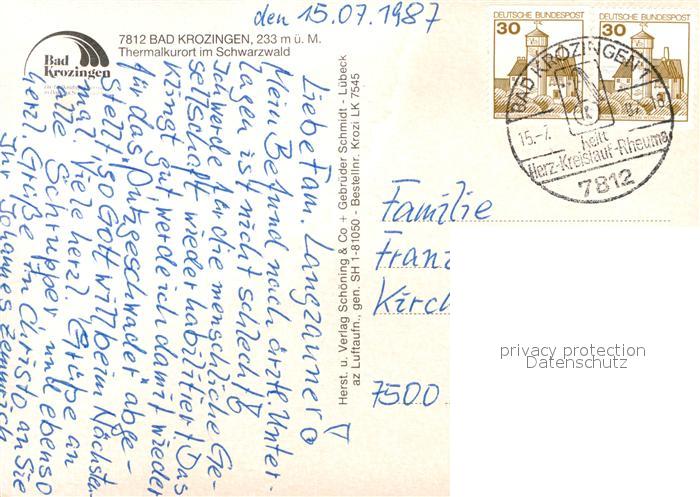 den 15.07.1987
Bad
Krozingen
7812 BAD KROZINGEN, 233 m ü. M.
Thermalkurort im Schwarzwald
Liebe Fam. Langzauner!
Mein Befund nach ärztl. Unter-
lagen ist nicht schlecht!
Ich werde für die menschliche Ge-
sellschaft wieder habilitiert! Das
klingt gut werde ich damit wieder
für das "Putzgeschwader" abge-
stellt, so Gott will beim Nächsten-
mal. Viele herzl. Grüße an
alle "Schrupper" und ebenso
herzl. Grüße in Christo an Sie
Ihr Johannes
Herst. u. Verlag Schöning & Co + Gebrüder Schmidt - Lübeck
az Luftaufn., gen. SH 1-81050 - Bestellnr. Krozi LK 7545
DEUTSCHE BUNDESPOST
30
DEUTSCHE BUNDESPOST
30
BAD KROZINGEN 1
15.-7.
heilt
Herz-Kreislauf-Rheuma
7812
Familie
Franz
Kirch
7500
privacy protection
Datenschutz